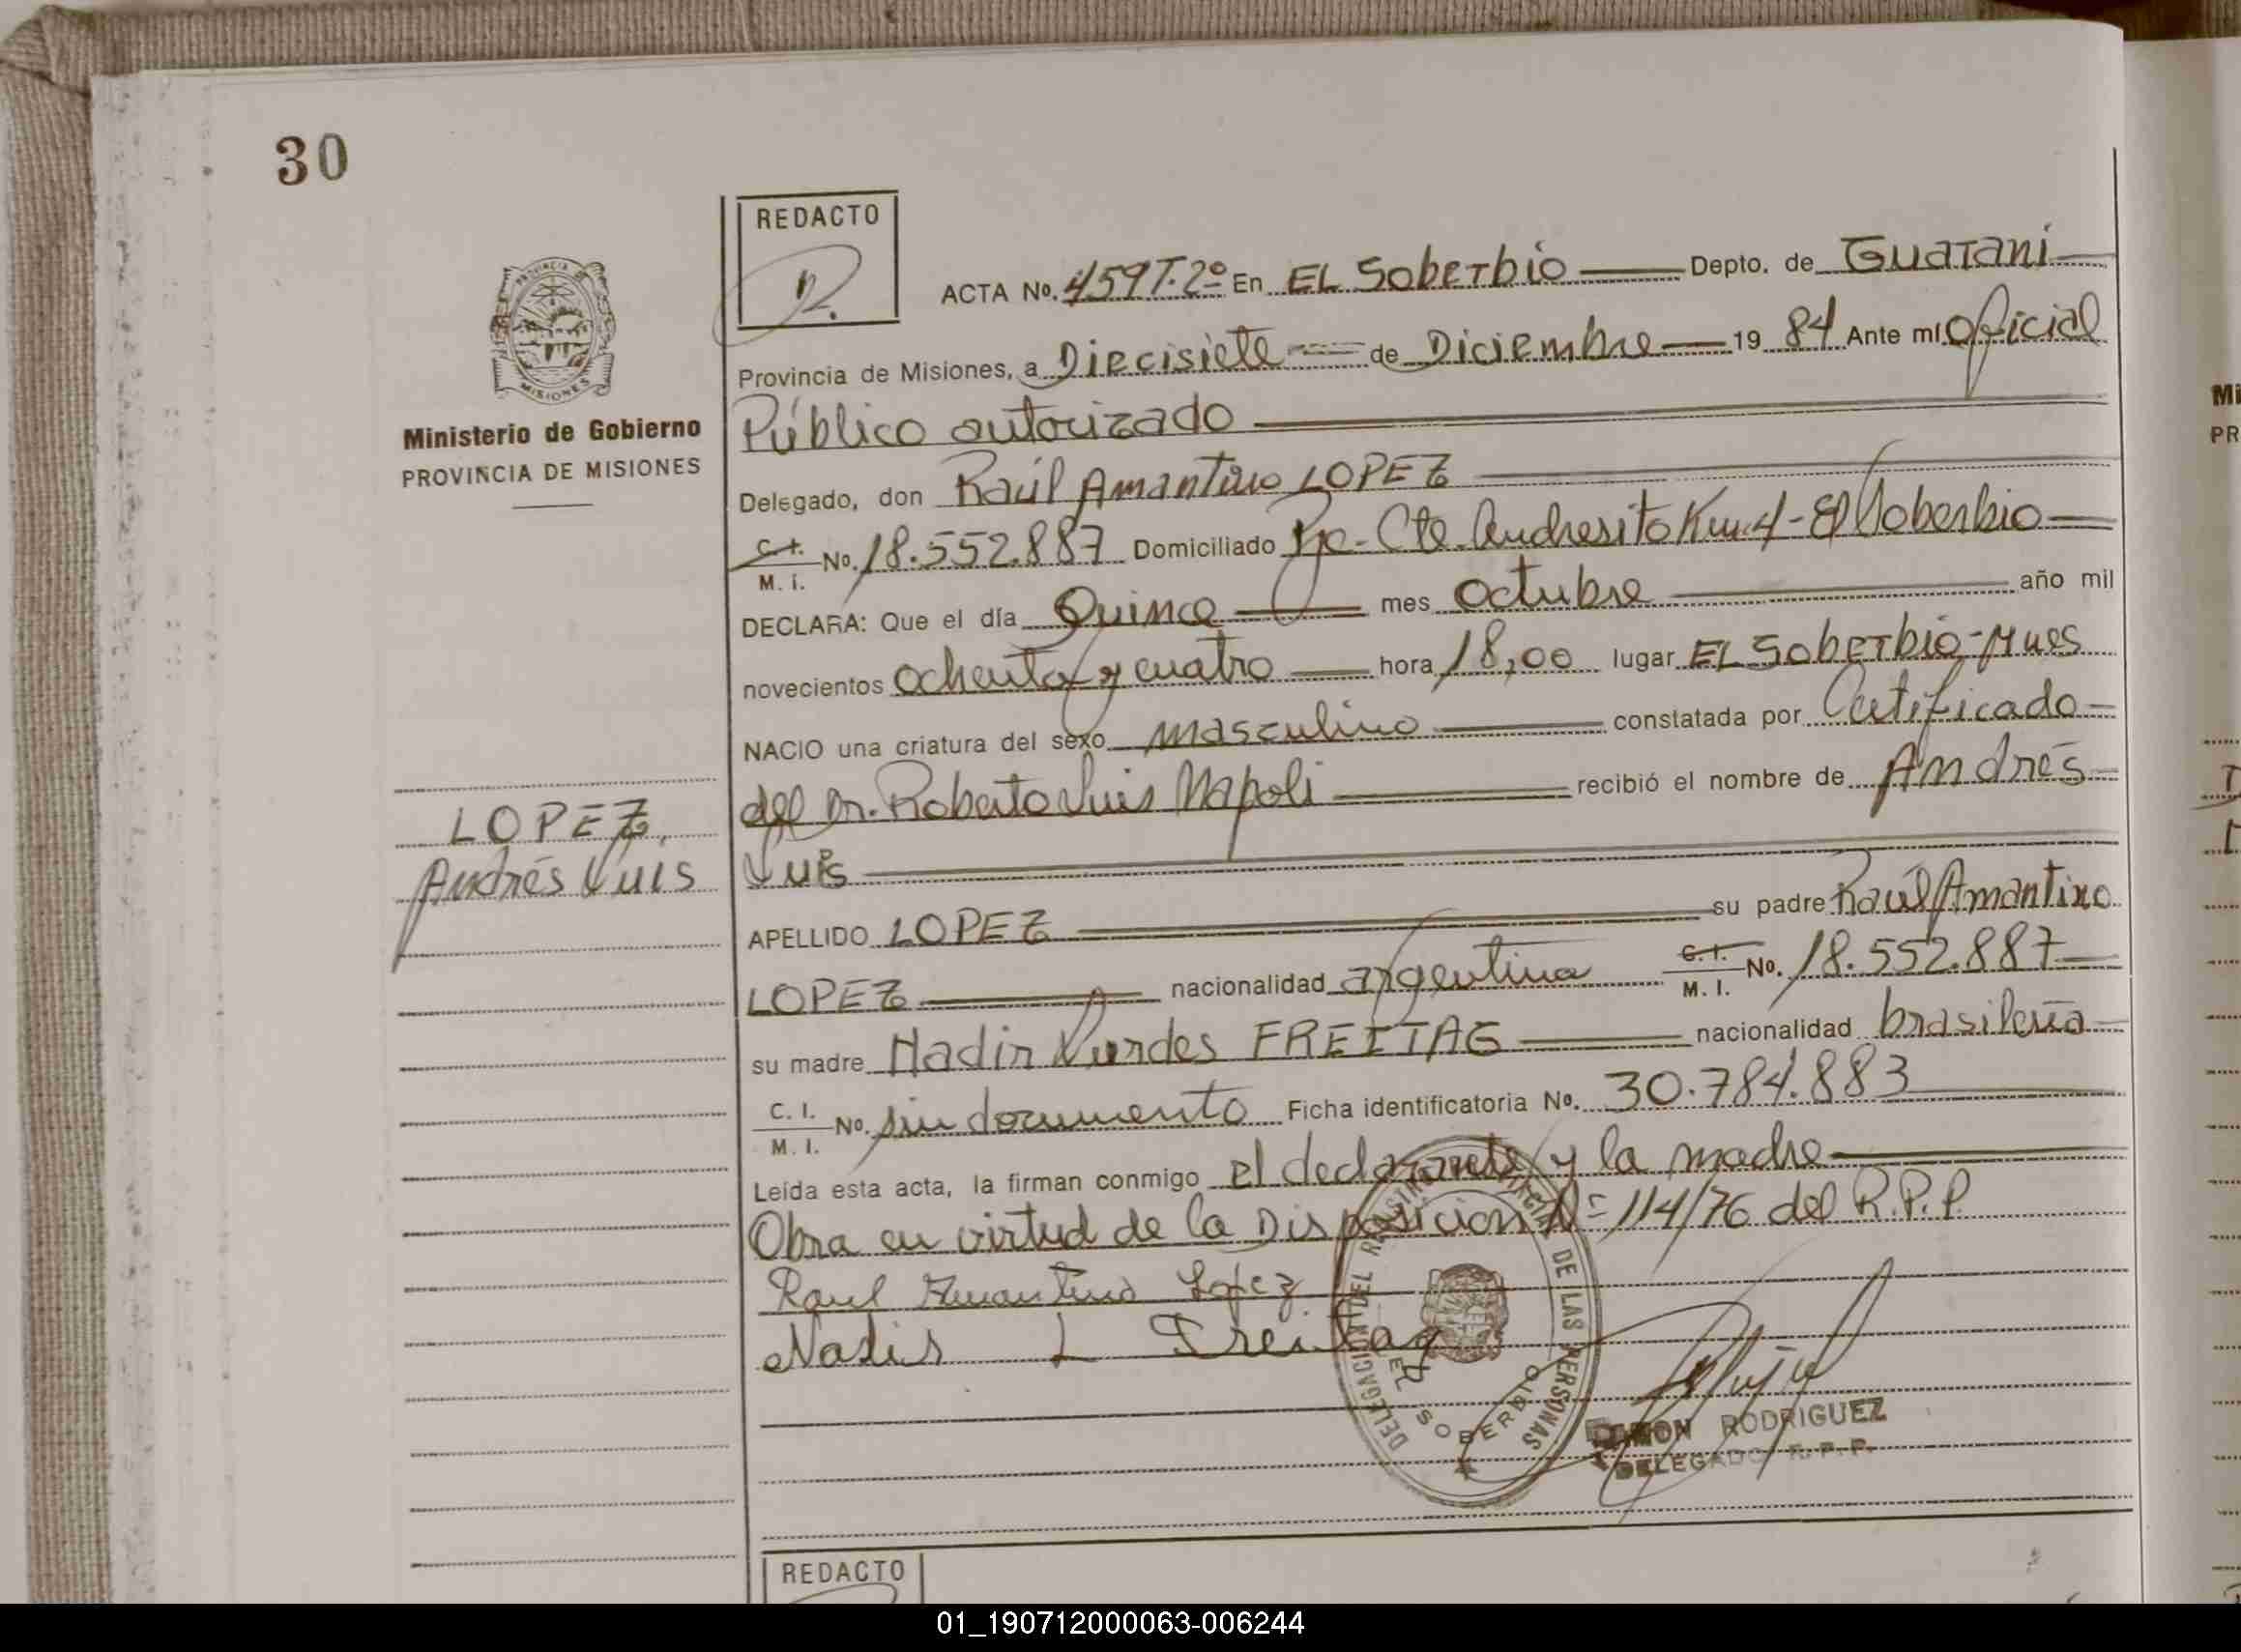 30
REDACTO
ACTA No. 459 T. 2º En EL Soberbio Depto. de Guarani
Provincia de Misiones, a Diecisiete de Diciembre 19 84 Ante mí Oficial
Ministerio de Gobierno
PROVINCIA DE MISIONES
Público autorizado
Delegado, don Raúl Amantino LOPEZ
C. I. M. I. No. 18.552.887 Domiciliado Cte. Andresito Km 4 - El Soberbio
DECLARA: Que el día Quince mes octubre año mil
novecientos ochenta y cuatro hora 18,00 lugar EL Soberbio-Mnes
NACIO una criatura del sexo masculino constatada por Certificado
del Dr. Roberto Luis Napoli recibió el nombre de Andrés
Luis
LOPEZ,
Andrés Luis
APELLIDO LOPEZ su padre Raúl Amantino
LOPEZ nacionalidad argentina C. I. M. I. No. 18.552.887
su madre Nadir Lurdes FREITAG nacionalidad brasileña
C. I. M. I. No. sin documento Ficha identificatoria No. 30.784.883
Leída esta acta, la firman conmigo el declarante y la madre
Obra en virtud de la Disposicion Nº 114/76 del R.P.P.
Raul Amantino Lopez
Nadir L Freitag
DELEGACION DEL REGISTRO PROVINCIAL DE LAS PERSONAS
EL SOBERBIO
RAMON RODRIGUEZ
DELEGADO R.P.P.
REDACTO
01_190712000063-006244